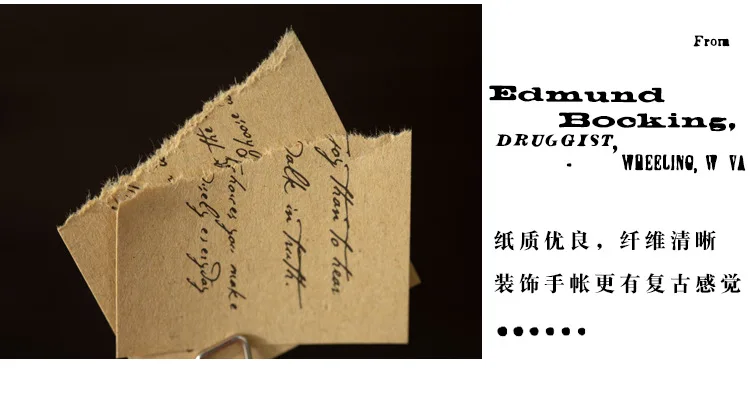 joy than to hear
walk in truth.
you make
everyday
From
Edmund
Bocking,
DRUGGIST,
WHEELING, W VA
纸质优良，纤维清晰
装饰手帐更有复古感觉
●●●●●●